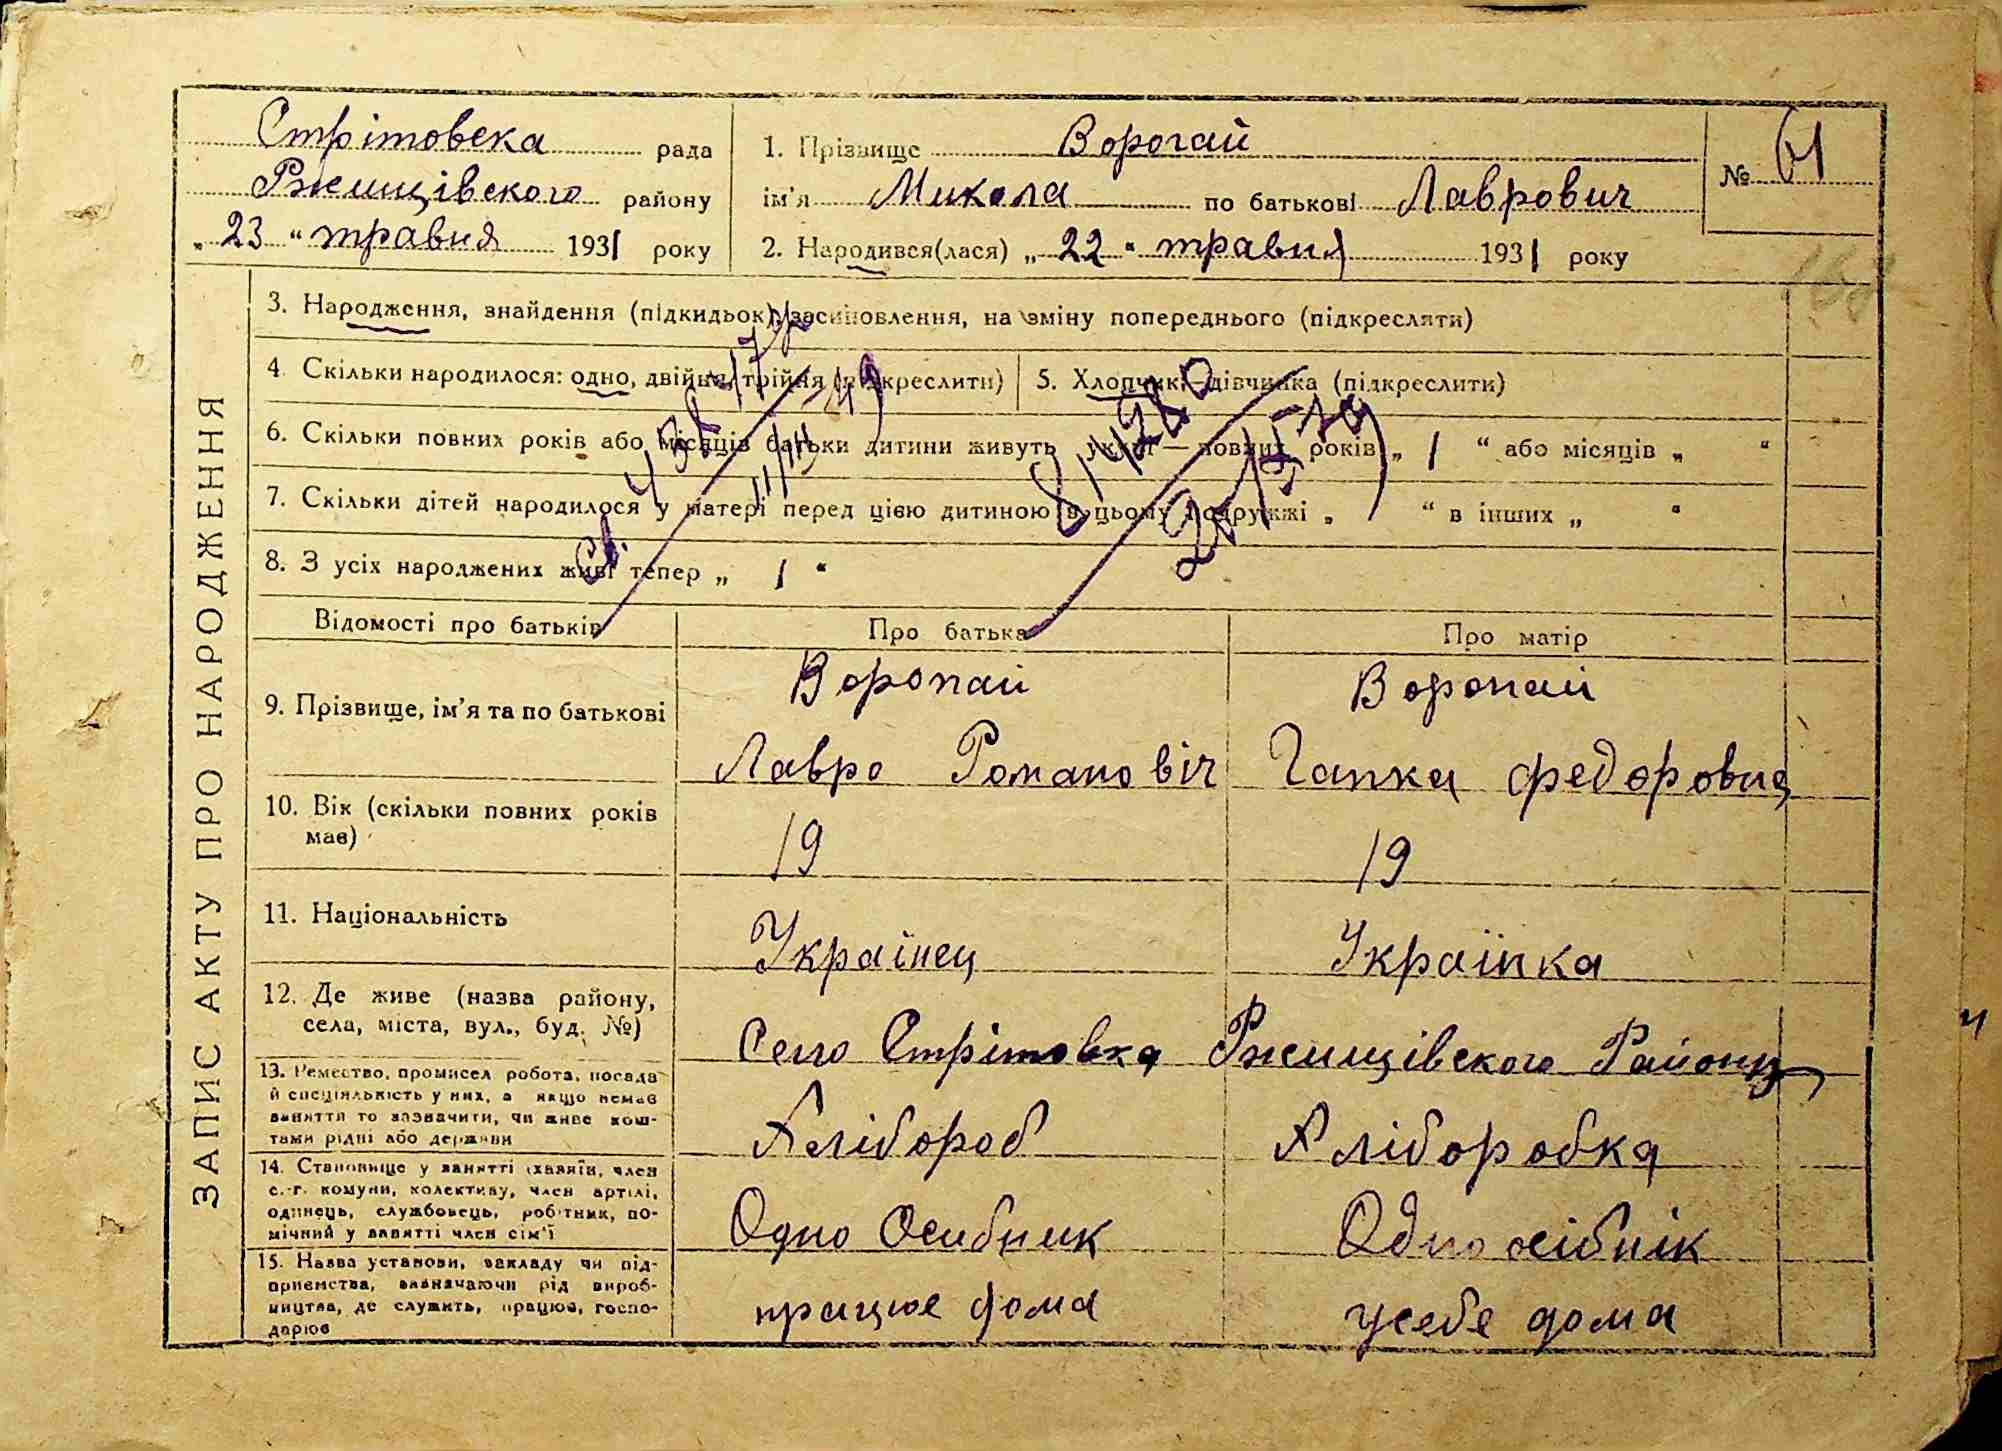 Стрітовска рада
Ржищівского району
„ 23 “ травня 1931 року
1. Прізвище Ворогай
ім'я Микола по батькові Лаврович
2. Народився(лася) „ 22 “ травня 1931 року
№ 61
ЗАПИС АКТУ ПРО НАРОДЖЕННЯ
3. Народження, знайдення (підкидьок), засиновлення, на зміну попереднього (підкреслити)
4. Скільки народилося: одно, двійня, трійня (підкреслити)
5. Хлопчик—дівчинка (підкреслити)
6. Скільки повних років або місяців батьки дитини живуть укупі — повних років „ 1 “ або місяців „ “
7. Скільки дітей народилося у матері перед цією дитиною в цьому подружжі „ “ в інших „ “
8. З усіх народжених живі тепер „ 1 “
Відомості про батьків
Про батька
Про матір
9. Прізвище, ім'я та по батькові
Воропай
Лавро Романовіч
Воропай
Гапка Федоровна
10. Вік (скільки повних років
має)
19
19
11. Національність
Українец
Українка
12. Де живе (назва району,
села, міста, вул., буд. №)
Село Стрітовка Ржищівского Району
13. Ремество, промисел робота, посада
й спеціяльність у них, а якщо немає
заняття то зазначити, чи живе кош-
тами рідні або держави
Хлібороб
Хліборобка
14. Становище у занятті (хазяїн, член
с.-г. комуни, колективу, член артілі,
одинець, службовець, робітник, по-
мічний у занятті член сім'ї
Одно Осибник
Одноосібнік
15. Назва установи, закладу чи під-
приємства, зазначаючи рід вироб-
ництва, де служить, працює, госпо-
дарює
працює дома
усебе дома